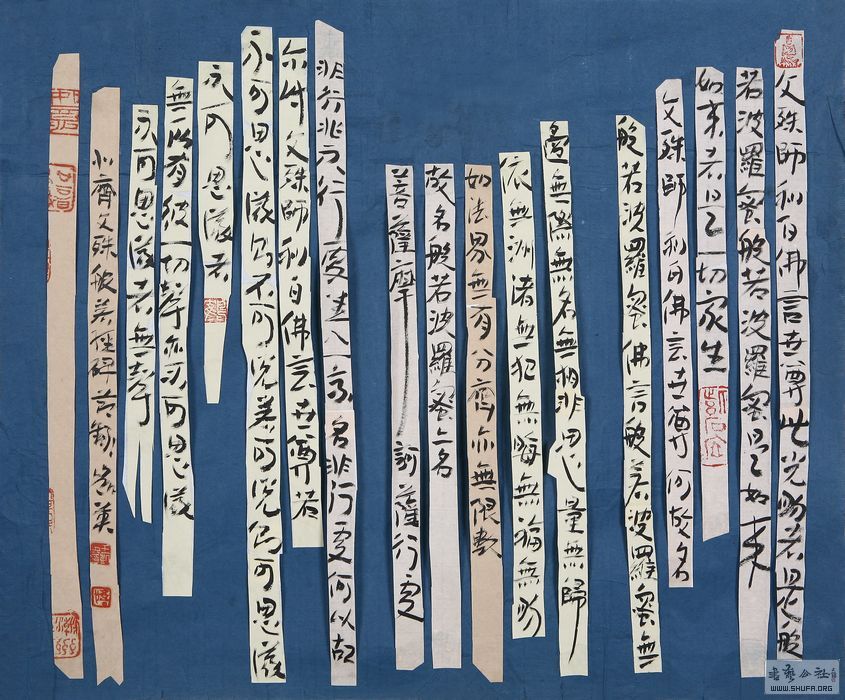 文殊師利白佛言世尊此光明者是般
若波羅蜜般若波羅蜜是如來
如來者是一切衆生
文殊師利白佛言世尊何故名
般若波羅蜜佛言般若波羅蜜無
邊無際無名無相非思量無歸
依無洲渚無犯無晦無福無明
如法界無有分齊亦無限數
故名般若波羅蜜名
菩薩摩訶薩行處
非行非不行處入一名非行處何以故
尔時文殊師利白佛言世尊若
不可思議不可說若可說可思議
不可思議者
無所有彼一切聲亦不可思議
不可思議者無聲
北齊文殊般若經碑
書藝公社
WWW.SHUFA.ORG